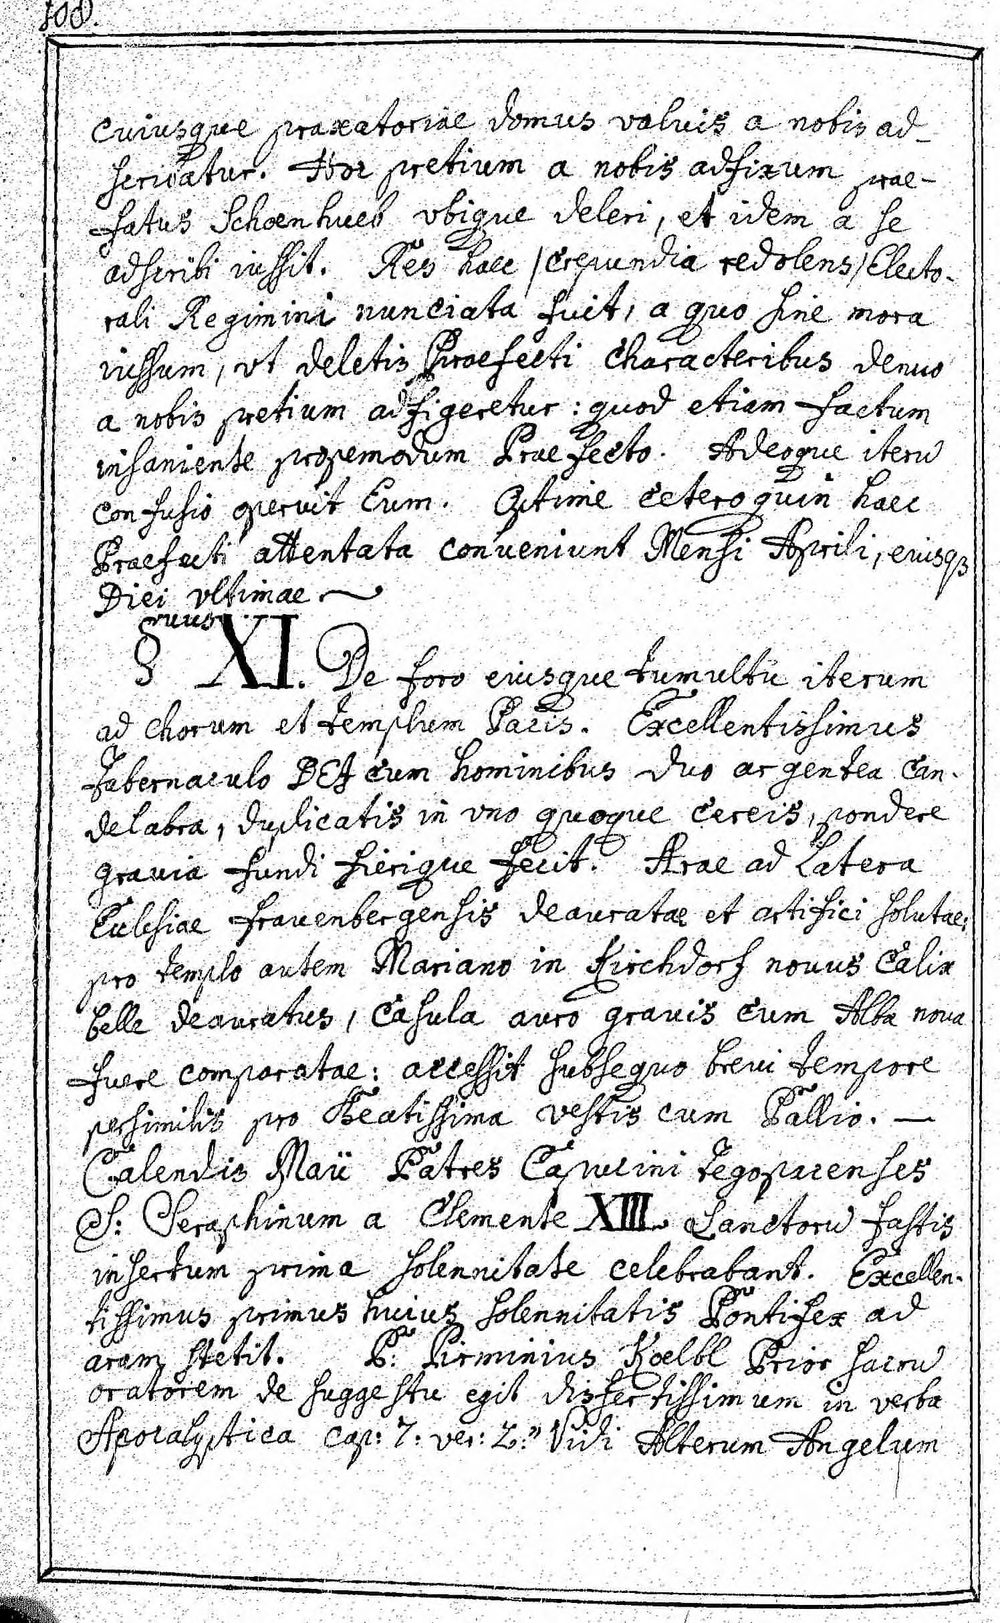 108.
cuiusque praxatoriae domus valvis a nobis ad-
scribatur. Hoc pretium a nobis adfixum prae-
fatus Schoenhueb vbique deleri, et idem a se
adscribi iussit. Res haec /crepundia redolens/ Electo-
rali Regimini nunciata fuit, a quo sine mora
iussum, vt deletis Praefecti characteribus denuo
a nobis pretium adfigeretur: quod etiam factum
insaniente propemodum Praefecto. Adeoque iterū
confusio operuit Eum. Optime ceteroquin haec
Praefecti attentata conveniunt Mensi Aprili, eiusqꝫ
Diei vltimae.
§vus XI. De foro eiusque tumultū iterum
ad chorum et templum Pacis. Excellentissimus
Tabernaculo DEI cum hominibus duo argentea Can-
delabra, duplicatis in vno quoque cereis, pondere
gravia fundi fierique fecit. Arae ad Latera
Eclesiae frauenbergensis deauratae et artifici solutae;
pro templo autem Mariano in Kirchdorf novus Calix
belle deauratus, Casula auro gravis cum Alba nova
fuere comparatae: accessit subsequo brevi tempore
persimilis pro Beatissima vestis cum Pallio. —
Calendis Maii Patres Capucini Tegoprenses
S: Seraphinum a Clemente XIII. Sanctorū fastis
insertum prima solennitate celebrabant. Excellen-
tissimus primus huius solennitatis Pontifex ad
aram stetit. P: Pirminius Koelbl Prior sacrū
oratorem de suggestu egit dissertissimum in verba
Apocalyptica cap: 7: ver: 2:" Vidi Alterum Angelum